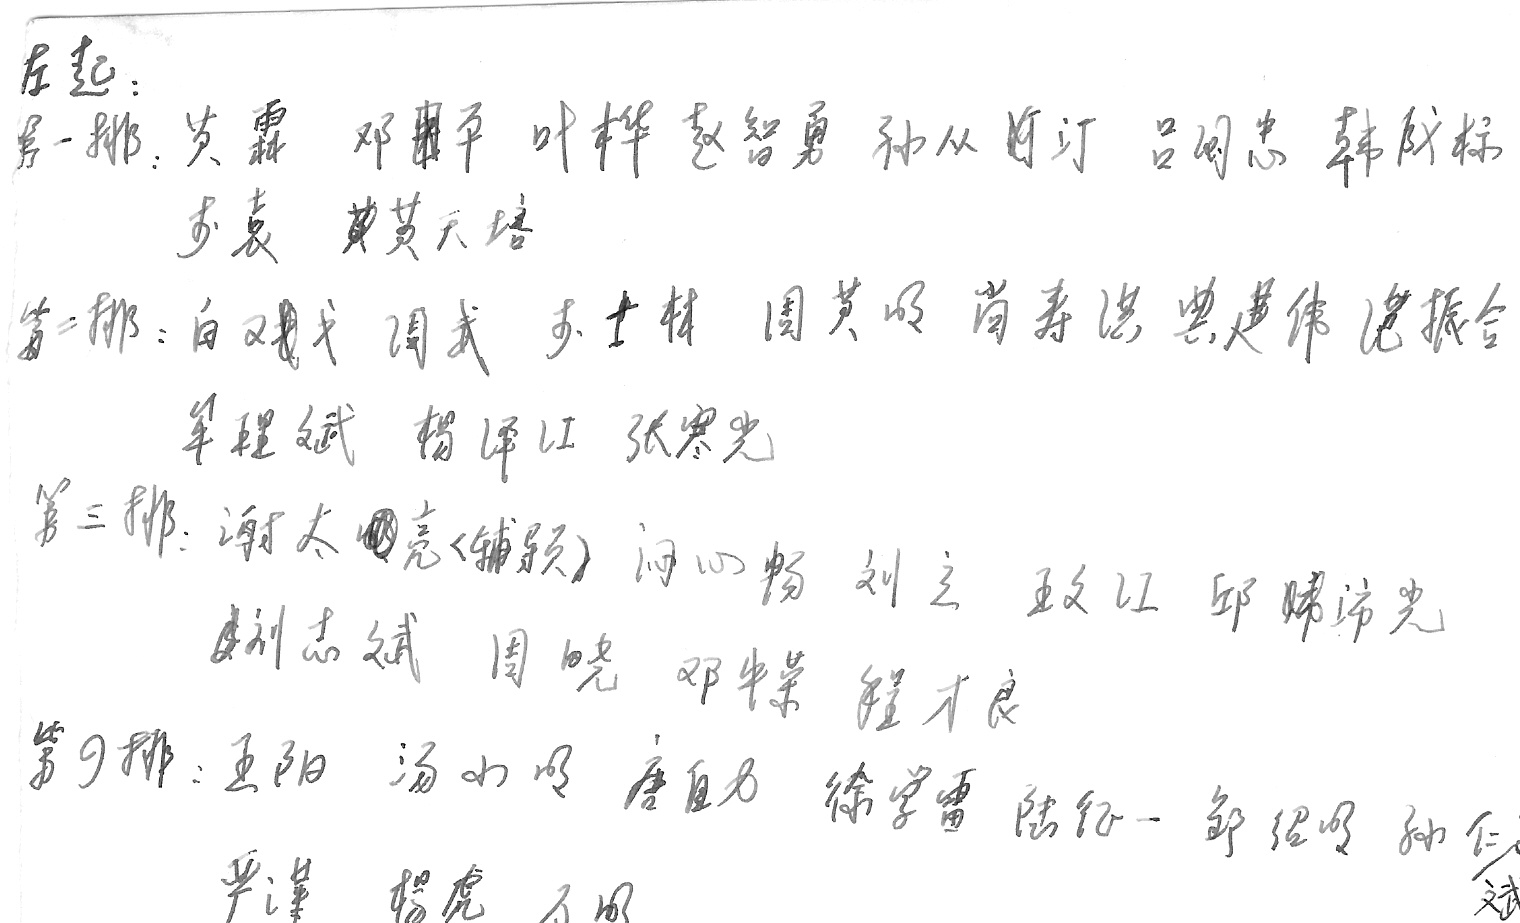 左起：
第一排：黄霖 邓平 叶桦 赵智勇 孙从汀 吕国忠 韩成标
步袁 黄天培
第二排：白戈 周武 步士林 周黄明 肖寿洪 典建伟 振合
牟程斌 杨泽江 张寒光
第三排：谢太亮（辅导员） 向心畅 刘立 王文江 邱沛光
刘志斌 周晓 邓中荣 程才良
第四排：王阳 汤小明 唐自力 徐学雷 陆征一 邹绍明 孙仁
斌
严谨 杨虎